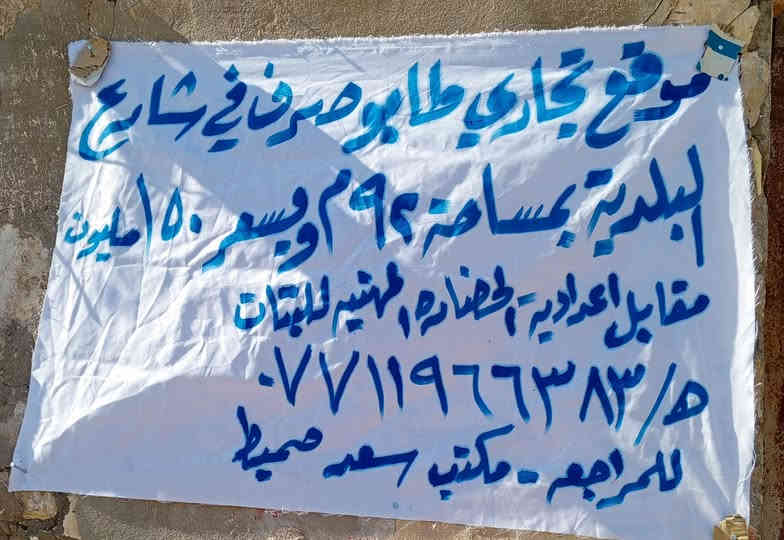 موقع تجاري طابو صرف في شارع
البلدية بمساحة ٩٢م وبسعر ١٥٠ مليون
مقابل اعدادية الحضاره المهنيه للبنات
ه/ ٠٧٧١١٩٦٦٣٨٣
للمراجعه - مكتب سعد حميط